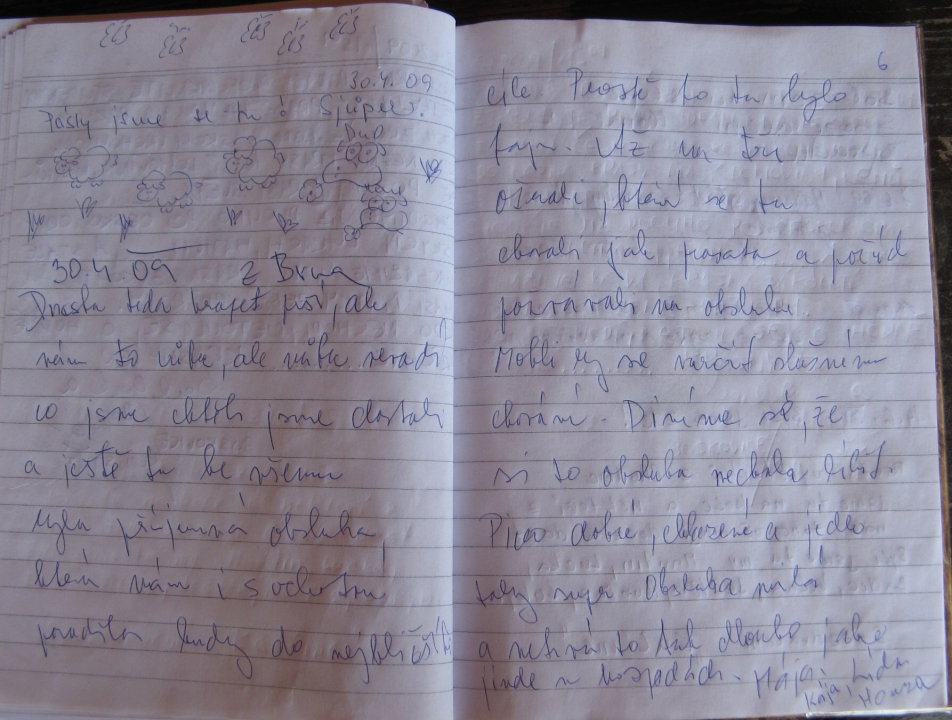 30.4.09
Pásly jsme se tu! Sjůper!
30.4.09 z Brna
Dnska tida krajet prší, ale
nám to vůbec, ale vůbec nevadí
co jsme chtěli jsme dostali
a ještě tu ke všemu
byla příjemná obsluha,
která nám i s ochotou
poradila kudy do nejbližší
6
cíle Prostě to tu bylo
fajn. Až na tu
ožralí, která se tu
chovali jak prasata a pořád
pokřávali na obsluhu.
Mohli by se naučit slušnému
chování. Divíme se, že
si to obsluha nechala líbit.
Pivo dobré, chlazené a jídlo
taky super Obsluha milá
a netrvá to tak dlouho jako
jinde v hospodách. Hája, Lída
Kája, Honza